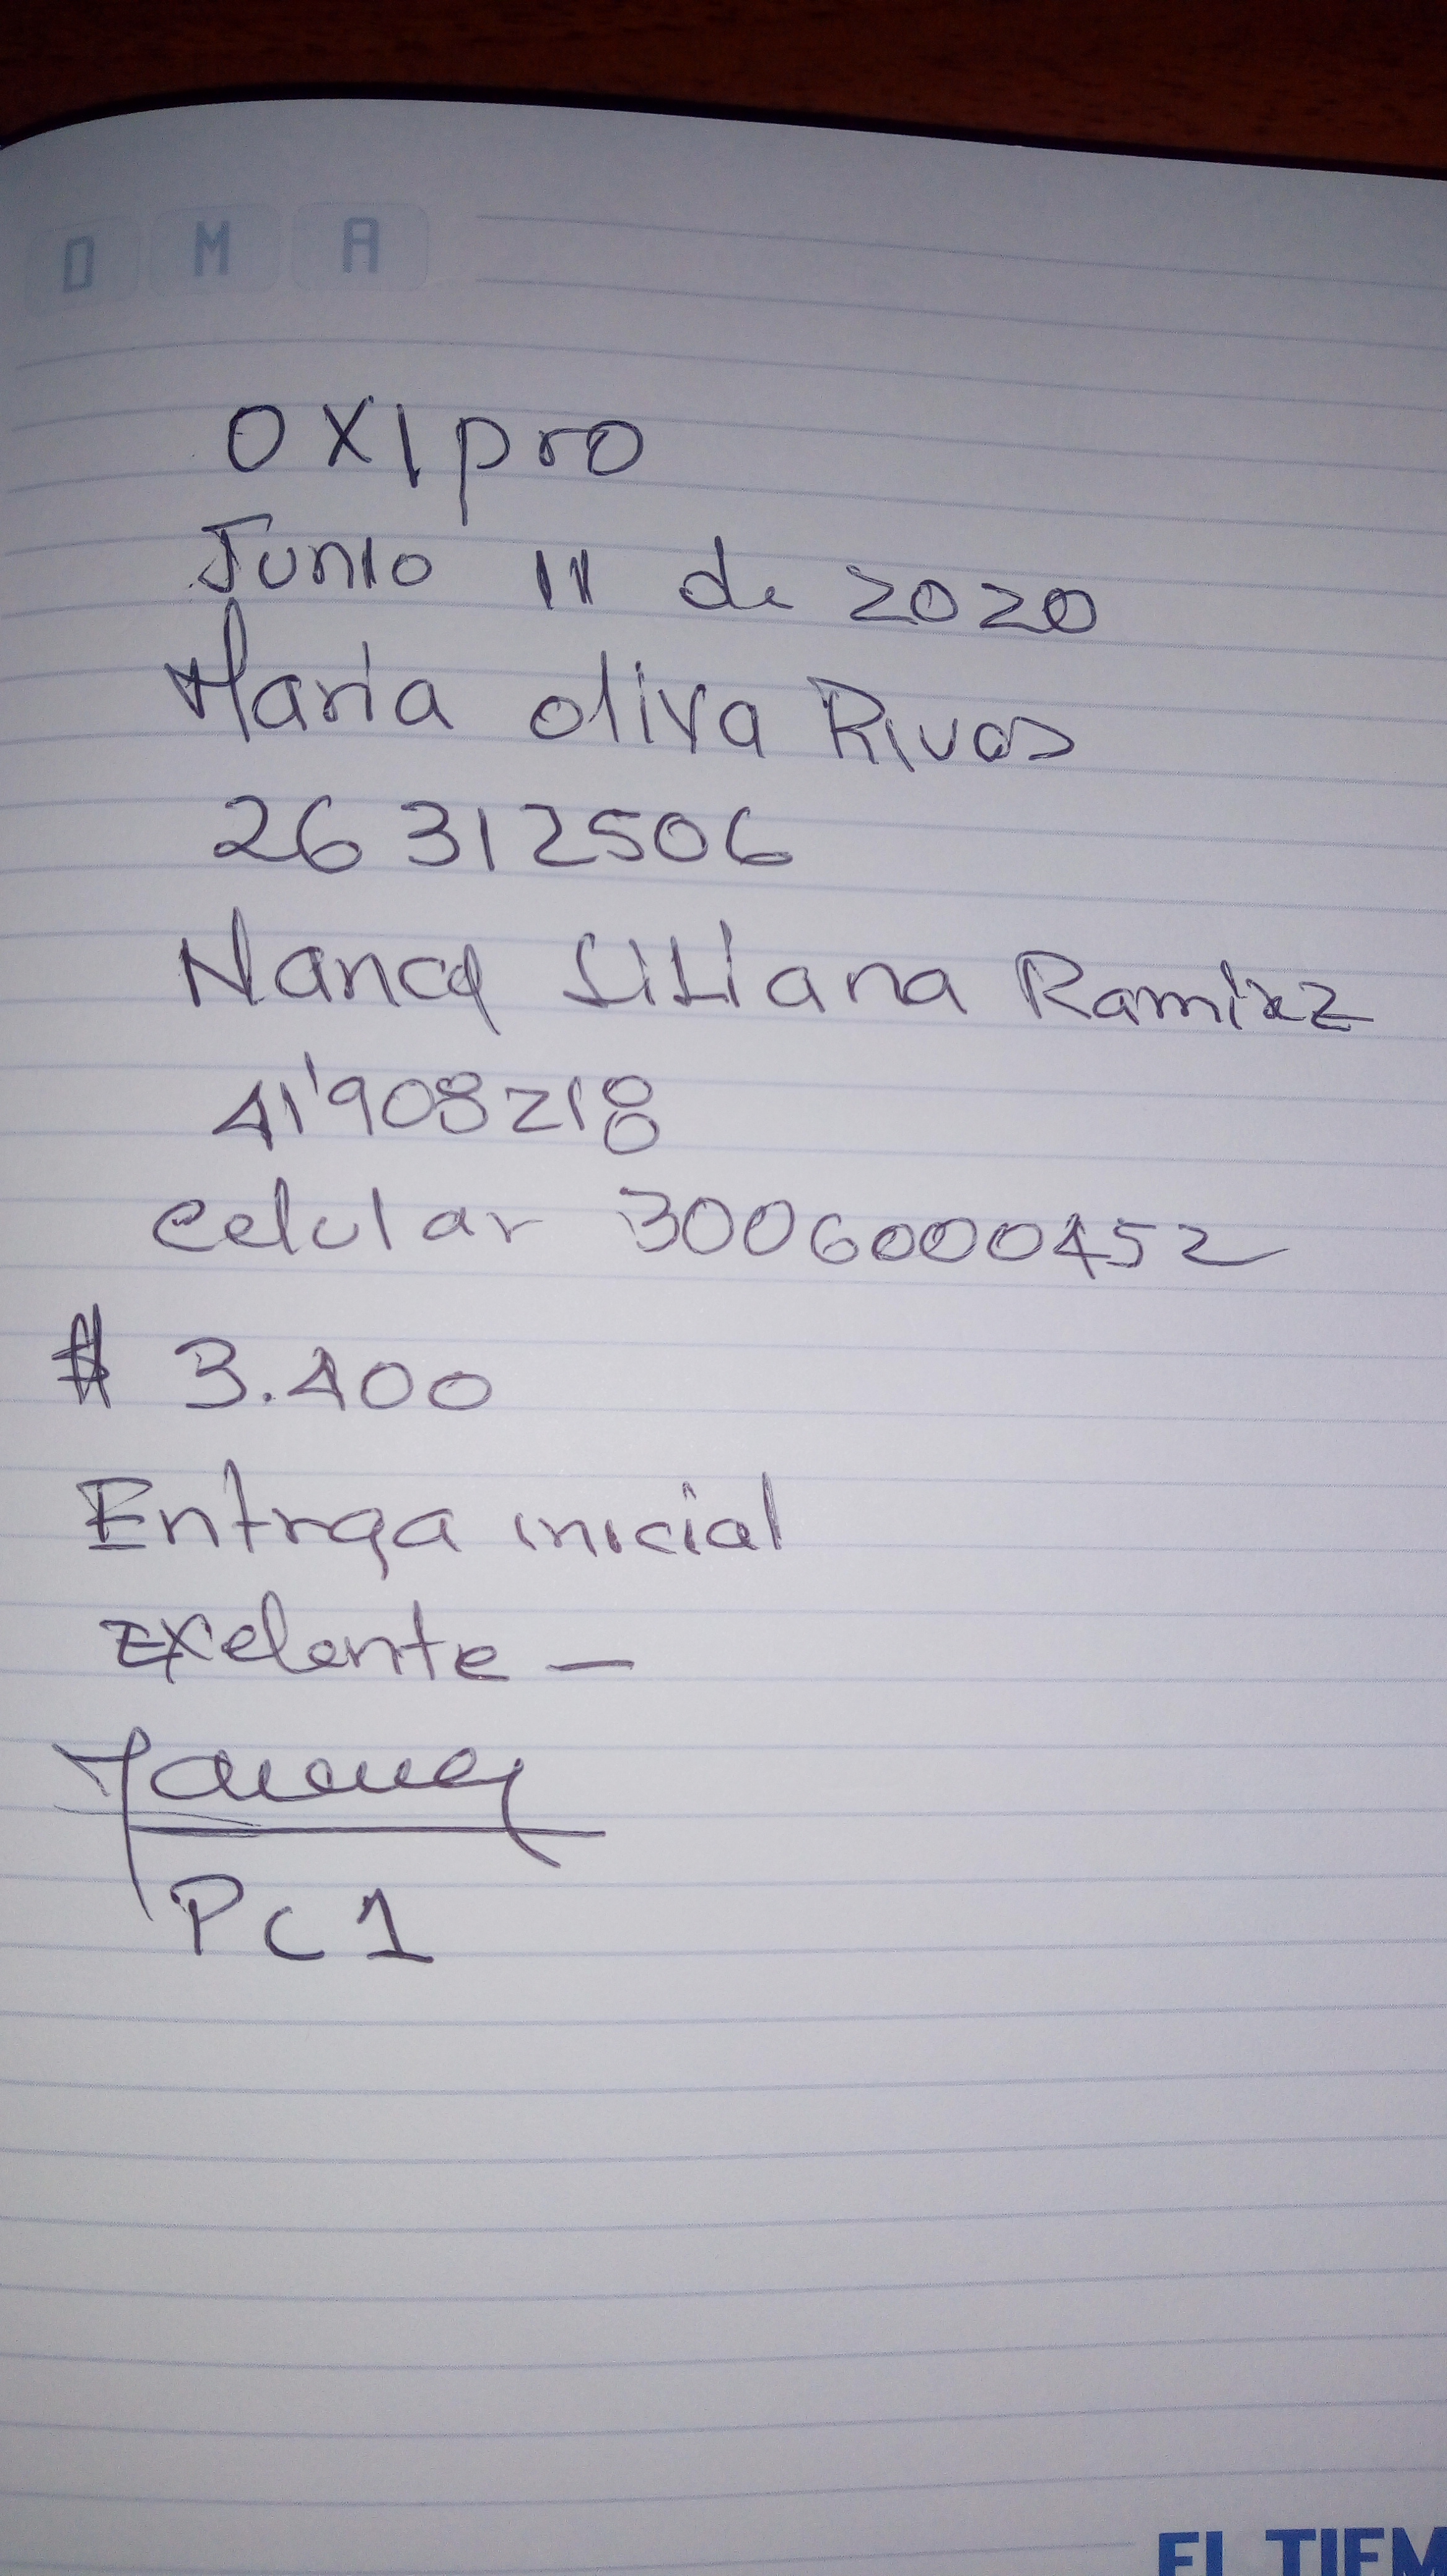 D M A
OXIpro
Junio 11 de 2020
Maria oliva Rivas
26 312506
Nancy Liliana Ramirez
41'908218
celular 3006000452
# 3.400
Entrga inicial
Exelente -
PC 1
EL TIEM